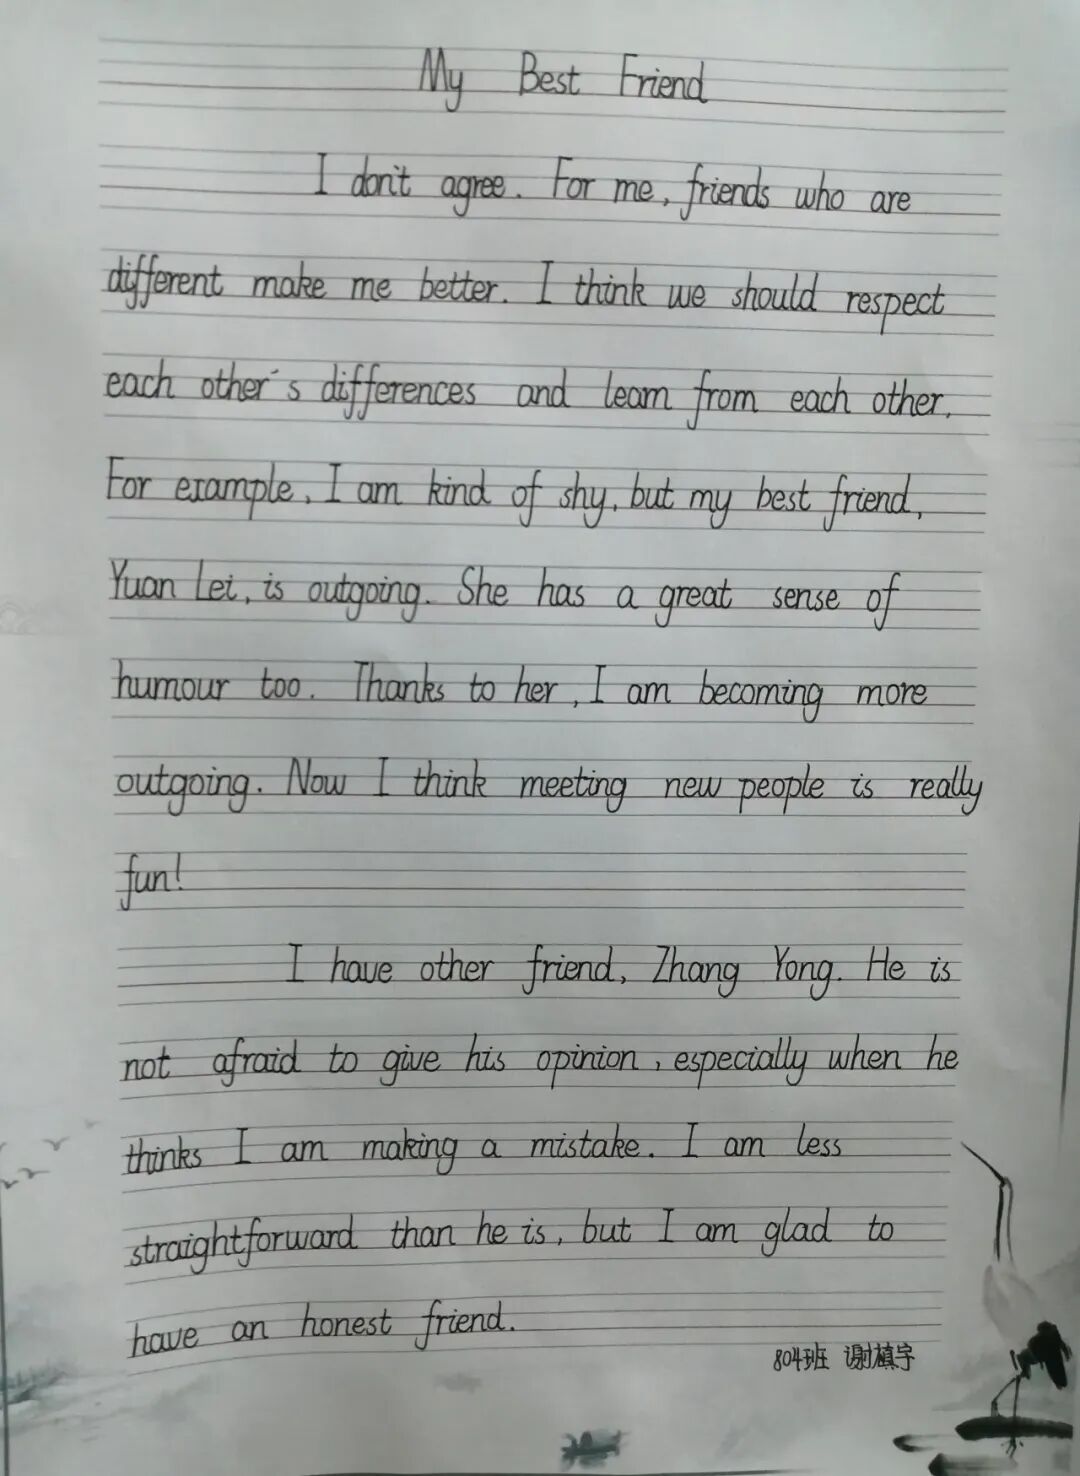 My Best Friend
I don't agree. For me, friends who are
different make me better. I think we should respect
each other's differences and learn from each other.
For example, I am kind of shy, but my best friend,
Yuan Lei, is outgoing. She has a great sense of
humour too. Thanks to her, I am becoming more
outgoing. Now I think meeting new people is really
fun!
I have other friend, Zhang Yong. He is
not afraid to give his opinion, especially when he
thinks I am making a mistake. I am less
straightforward than he is, but I am glad to
have an honest friend.
804班 谢槙宇